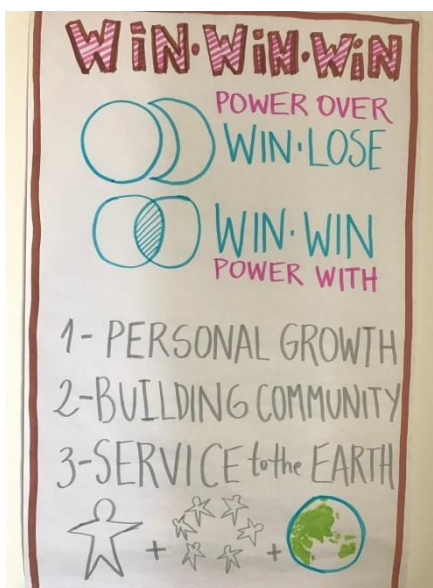 WiN·WiN·WiN
POWER OVER
WIN·LOSE
WIN·WIN
POWER WITH
1- PERSONAL GROWTH
2-BUILDING COMMUNITY
3-SERVICE to the EARTH
+ +